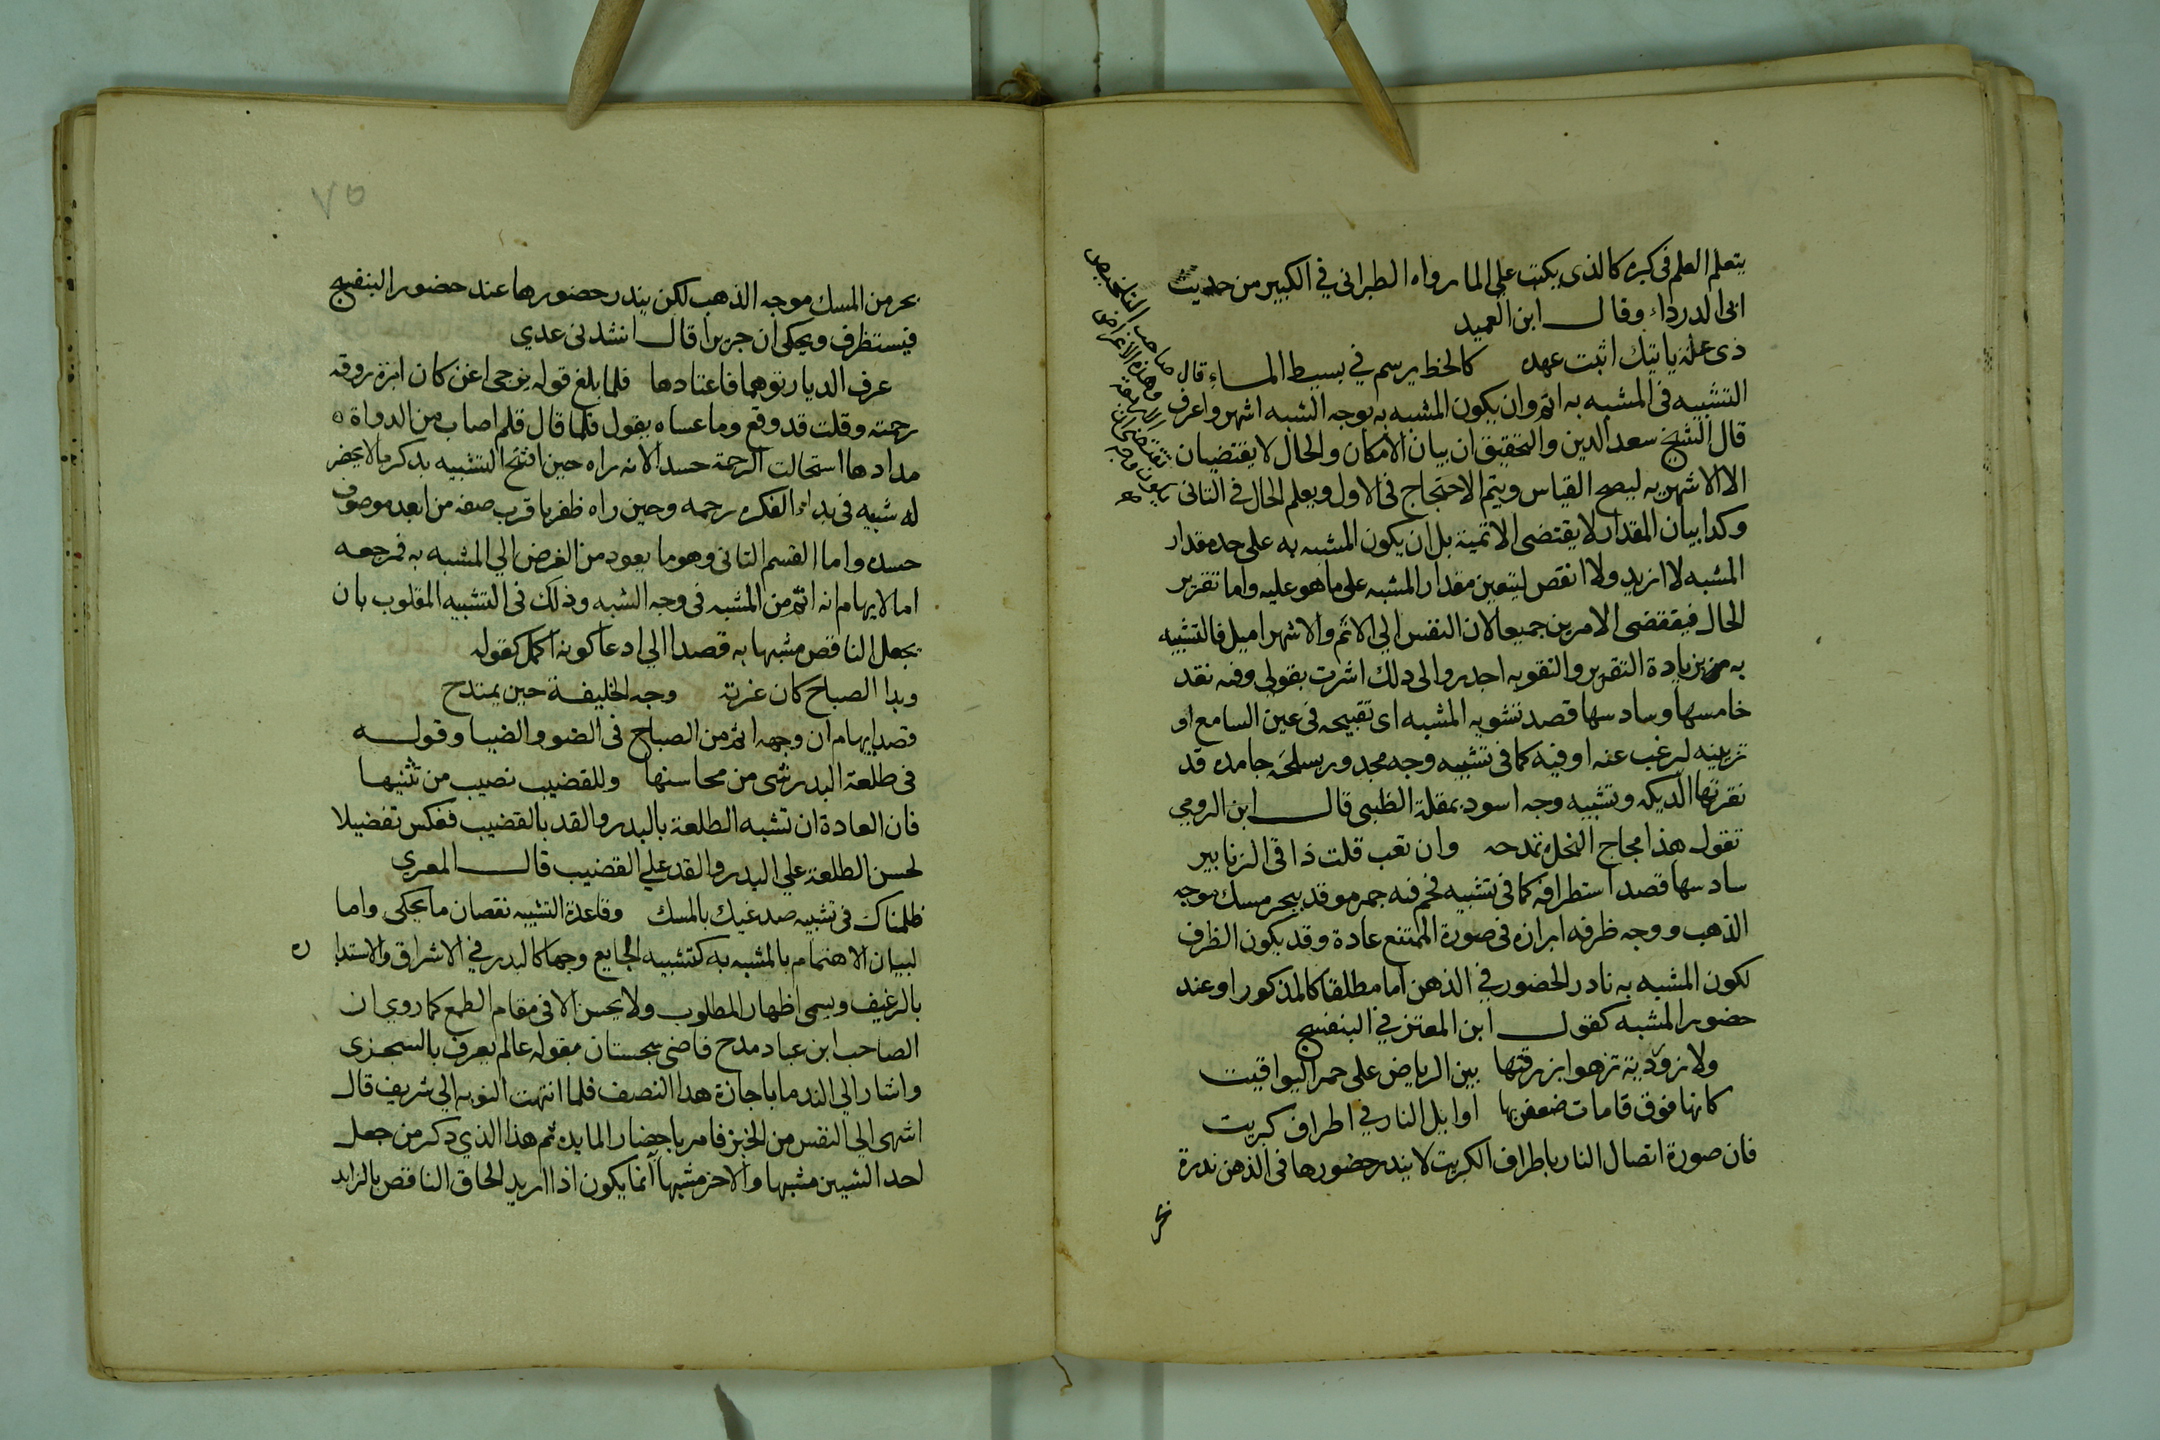 يتعلم العلم في كبره كالذي يكتب على الما رواه الطبراني في الكبير من حديث
ابي الدرداء وقال ابن العميد
ذي علة ياتيك اثبت عهده كالخط يرسم في بسيط الماء قال
صاحب التلخيص
وهذه الاغراض
الاربعة
تقتضي ان
يكون وجه
التشبيه في المشبه به اتم وان يكون المشبه به بوجه الشبه اشهر واعرف
قال الشيخ سعد الدين والتحقيق ان بيان الامكان والحال لا يقتضيان
الا الاشهريه ليصح القياس ويتم الاحتجاج في الاول ويعلم الحال في الثاني
وكذا بيان المقدار لا يقتضي الاتمية بل ان يكون المشبه به على حد مقدار
المشبه لا ازيد ولا انقص ليتعين مقدار المشبه على ما هو عليه واما تقرير
الحال فيقتضي الامرين جميعا لان النفس الي الاتم والاشهر اميل فالتشبيه
به من زيادة التقرير والتقويه اجدر والى ذلك اشرت بقولي وفيه نقد
خامسها وسادسها قصد تشويه المشبه اى تقبيحه في عين السامع او
تزيينه ليرغب عنه او فيه كما في تشبيه وجه مجدور بسلحة جامده قد
نقرتها الديكه وتشبيه وجه اسود بمقلة الظبي قال ابن الرومي
تقول هذا مجاج النحل تمدحه وان تعب قلت ذا قي الزنابير
سادسها قصد استطرافه كما في تشبيه فحم فيه جمر موقد ببحر مسك موجه
الذهب ووجه ظرفه ابرازه في صورة الممتنع عادة وقد يكون الظرف
لكون المشبه به نادر الحضور في الذهن اما مطلقا كالمذكور او عند
حضور المشبه كقول ابن المعتز في البنفسج
ولازوردية تزهو بزرقتها بين الرياض على حمر اليواقيت
كانها فوق قامات ضعفن بها اوايل النار في اطراف كبريت
فان صورة اتصال النار باطراف الكبريت لا يندر حضورها في الذهن ندرة
بحر
٧٥
بحر من المسك موجه الذهب لكن يندر حضورها عند حضور البنفسج
فيستظرف ويحكى ان جريرا قال انشدني عدي
عرف الديار توهما فاعتادها فلما بلغ قوله يزجي اغن كان ابرة روقه
رحمته وقلت قد وقع وما عساه يقول فلما قال قلم اصاب من الدواة
مدادها استحالت الرحمة حسدا لانه راه حين افتتح التشبيه بذكر ما لا يحضر
له شبيه في بداء الفكره رحمه وحين راه ظفر باقرب صفه من ابعد موصوف
حسده واما القسم الثاني وهو ما يعود من الغرض الي المشبه به فمرجعه
اما لايهام انه اتم من المشبه في وجه الشبه وذلك في التشبيه المقلوب بان
يجعل الناقص مشبها به قصدا الي ادعا كونه اكمل كقوله
وبدا الصباح كان غرته وجه الخليفة حين يمتدح
قصد ايهام ان وجهه اتم من الصباح في الضو والضيا وقوله
في طلعة البدر شى من محاسنها وللقضيب نصيب من تثنيها
فان العادة ان تشبه الطلعة بالبدر والقد بالقضيب فعكس تفضيلا
لحسن الطلعة علي البدر والقد علي القضيب قال المعري
ظلمناك في تشبيه صدغيك بالمسك وقاعدة التشبيه نقصان ما يحكى واما
لبيان الاهتمام بالمشبه به كتشبيه الجايع وجها كالبدر في الاشراق والاستدا ره
بالرغيف ويسمى اظهار المطلوب ولا يحسن الا في مقام الطمع كما روي ان
الصاحب ابن عباد مدح قاضي سجستان بقوله عالم يعرف بالسجزى
واشار الي الندما باجازة هذا النصف فلما انتهت النوبه الي شريف قال
اشهى الي النفس من الخبز فامر باحضار المايده ثم هذا الذي ذكر من جعل
احد الشيين مشبها والاخر مشبها انما يكون اذا اريد الحاق الناقص بالزايد